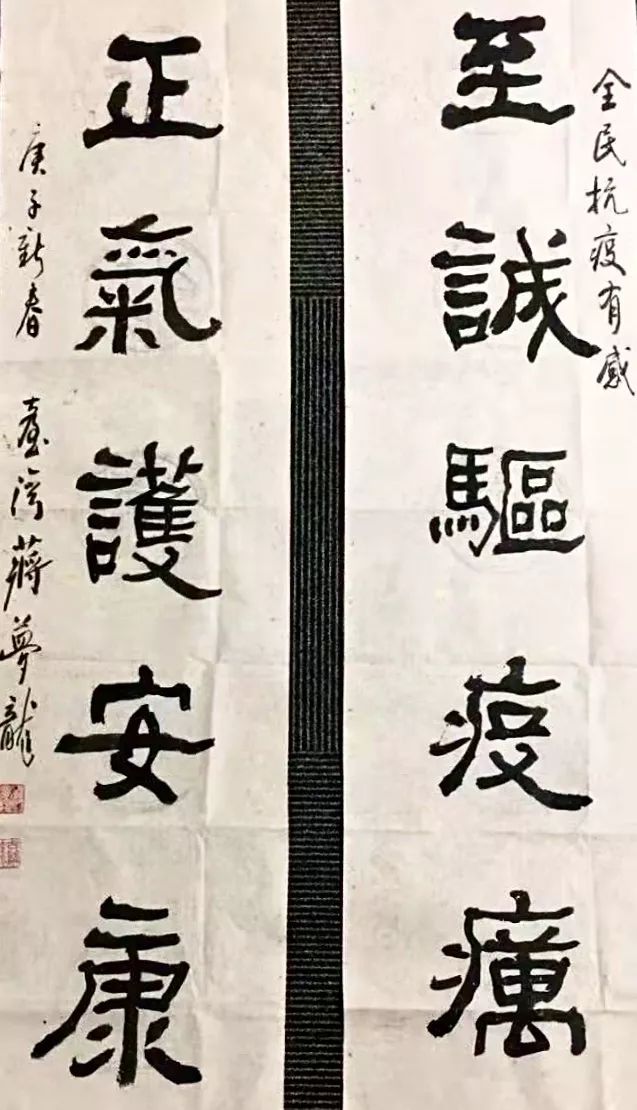 全民抗疫有感
至誠驅疫癘
正氣護安康
庚子新春 臺灣蔣夢龍